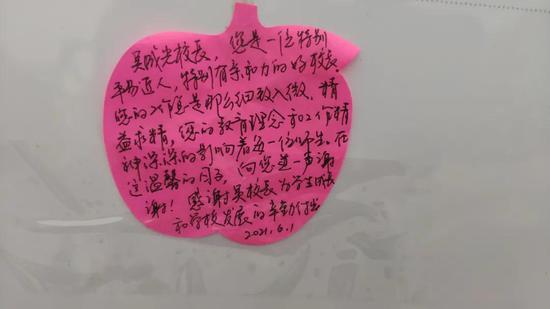 吴成光校长，您是一位特别
平易近人，特别有亲和力的好校长
您的工作总是那么细致入微、精
益求精，您的教育理念和工作精
神深深的影响着每一位师生。在
这温馨的日子，向您道一声谢
谢！感谢吴校长为学生成长
和学校发展的辛勤付出
2021.6.1